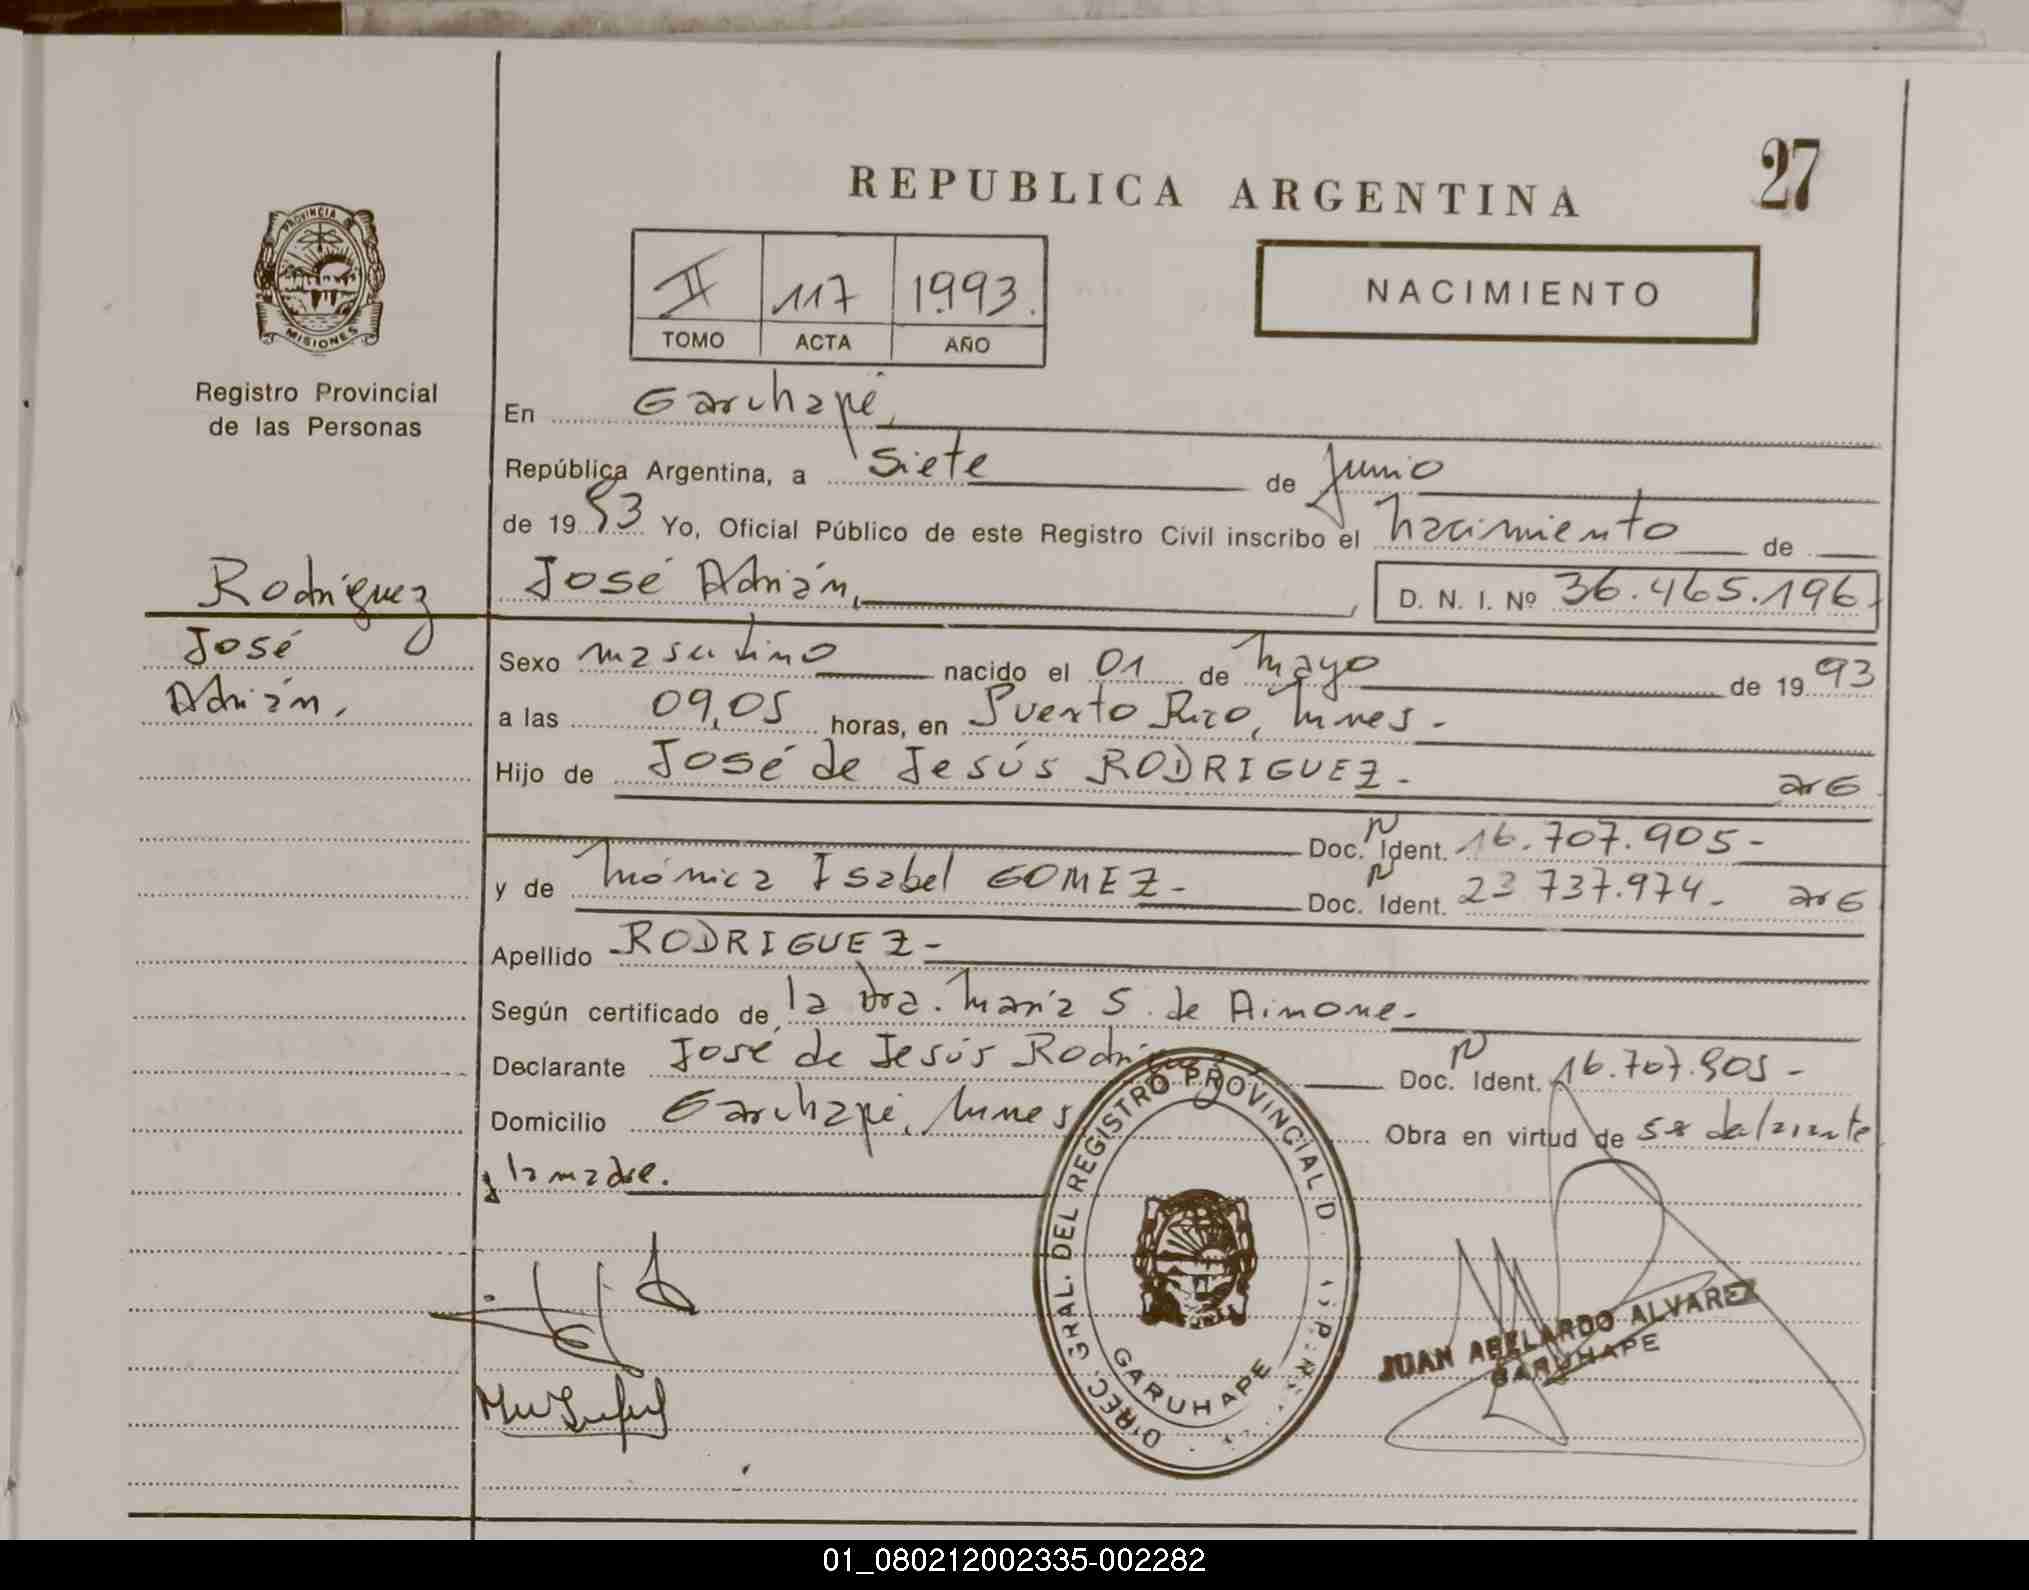 REPUBLICA ARGENTINA
27
PROVINCIA DE
MISIONES
Registro Provincial
de las Personas
II 117 1993.
TOMO ACTA AÑO
NACIMIENTO
En Garuhapé,
República Argentina, a siete de Junio
de 1993 Yo, Oficial Público de este Registro Civil inscribo el nacimiento de
Rodriguez
José
Adrián,
José Adrián, D. N. I. Nº 36.465.196-
Sexo masculino nacido el 01 de mayo de 1993
a las 09,05 horas, en Puerto Rico, Mnes.-
Hijo de José de Jesús RODRIGUEZ- arG
Doc. N Ident. 16.707.905-
y de Mónica Isabel GOMEZ- Doc. N Ident. 23 737.974- arG
Apellido RODRIGUEZ-
Según certificado de la Dra. María S. de Aimone.-
Declarante José de Jesús Rodriguez Doc. N Ident. 16.707.905-
Domicilio Garuhapé, Mnes Obra en virtud de ser declarante
y la madre.
DIREC. GRAL. DEL REGISTRO PROVINCIAL D
GARUHAPE
JUAN ABELARDO ALVAREZ
GARUHAPE
01_080212002335-002282